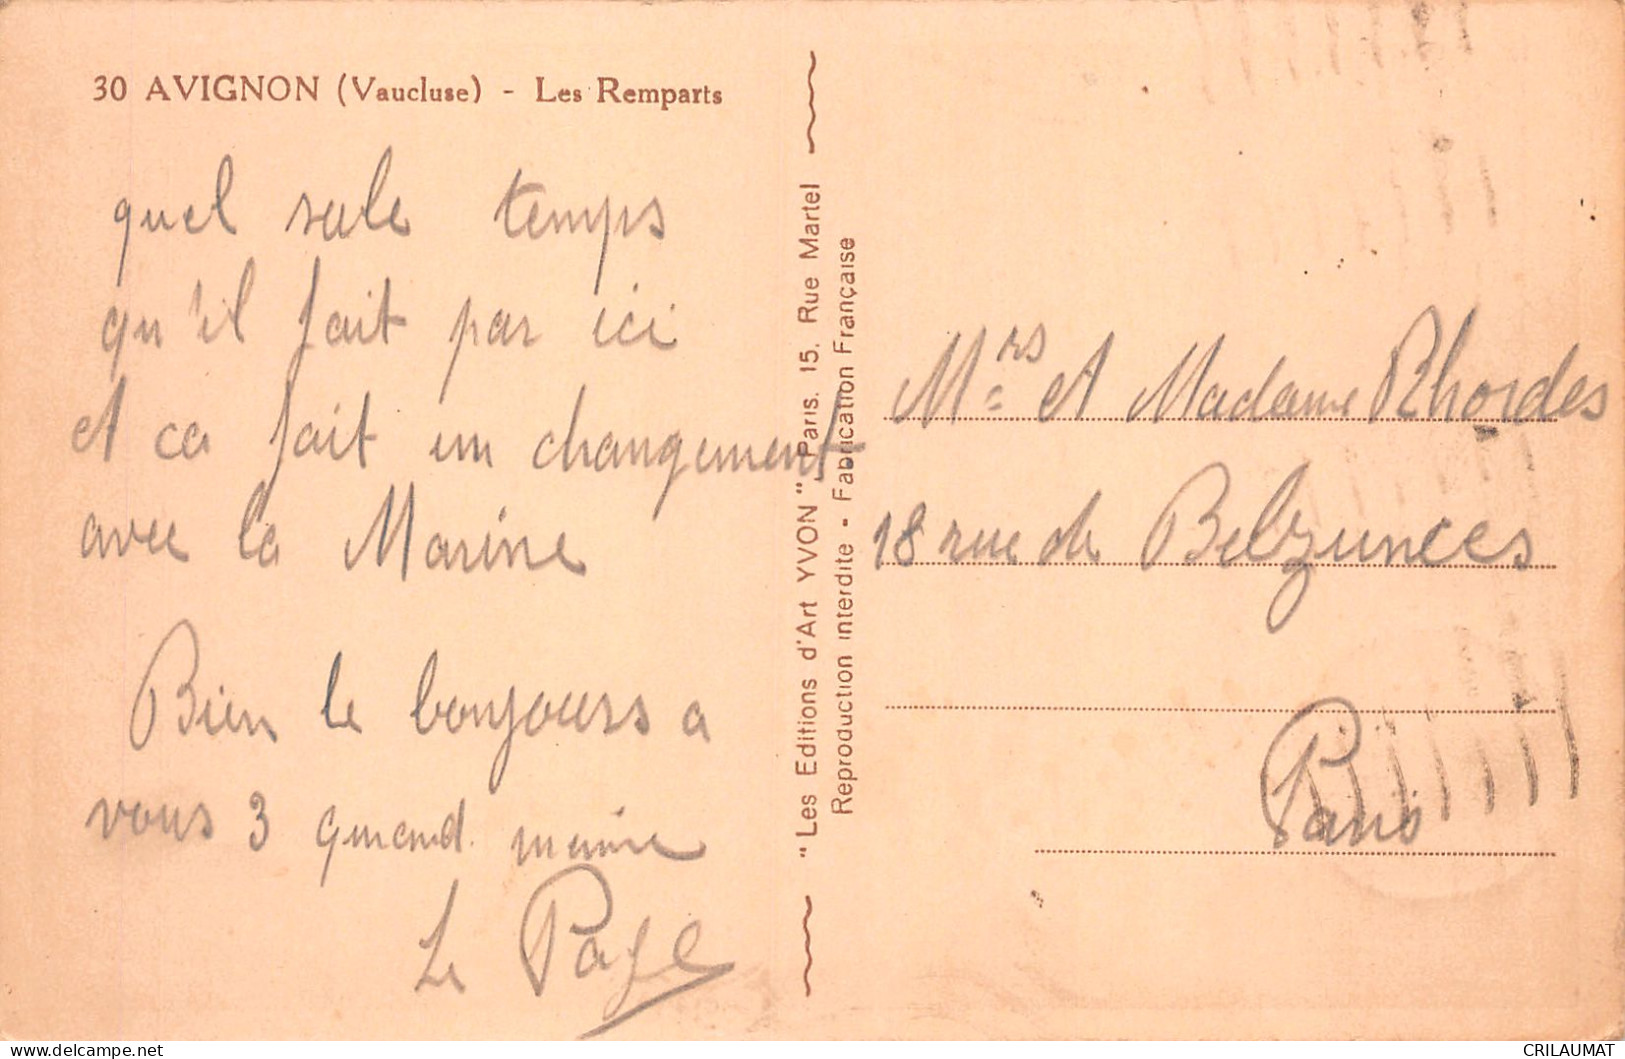 30 AVIGNON (Vaucluse) - Les Remparts
quel sale temps
qu'il fait par ici
et ca fait un changement
avec la Marine
Bien le bonjours a
vous 3 quand même
Le Page
"Les Editions d'Art YVON" Paris. 15. Rue Martel
Reproduction interdite - Fabrication Française
Mrs et Madame Rhordes
18 rue de Belzunces
Paris
CRILAUMAT